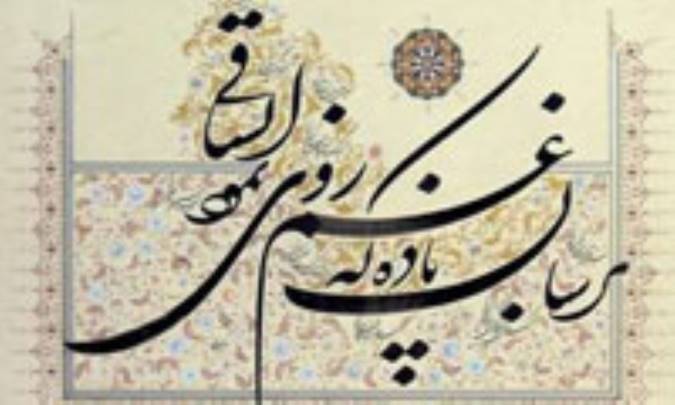 برسان باده که غم روی نمود ای ساقی